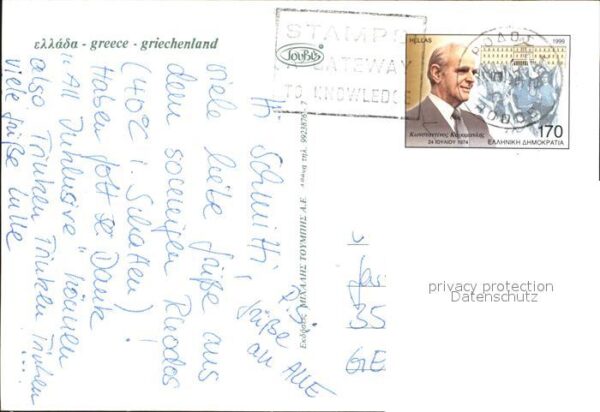 ελλάδα - greece - griechenland
Τουμπής
STAMPS
A GATEWAY
TO KNOWLEDGE
ΡΟΔΟΣ
HELLAS
1999
Κωνσταντίνος Καραμανλής
24 ΙΟΥΛΙΟΥ 1974
170
ΕΛΛΗΝΙΚΗ ΔΗΜΟΚΡΑΤΙΑ
Hi Schmitti,
viele liebe Grüße aus
dem sonnigen Rhodos
(40°C i. Schatten)
Haben Gott sei Dank
"All Inklusive" können
also Trinken Trinken Trinken ...
Viele Grüße
P.S.
Grüße
an ALLE
Εκδόσεις ΜΙΧΑΛΗΣ ΤΟΥΜΠΗΣ Α.Ε. Αθήνα τηλ. 9923876-7
35
GE
privacy protection
Datenschutz